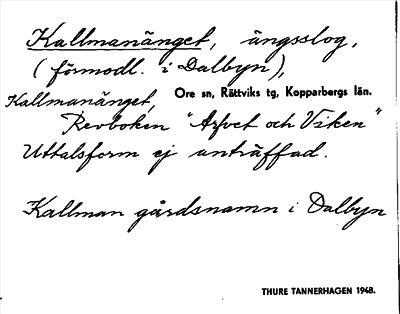 Kallmanänget, ängsslog,
(förmodl. i Dalbyn),
Kallmanänget, Ore sn, Rättviks tg, Kopparbergs län.
Revboken "Arvet och Viken"
Uttalsform ej anträffad.
Kallman gårdsnamn i Dalbyn
THURE TANNERHAGEN 1948.